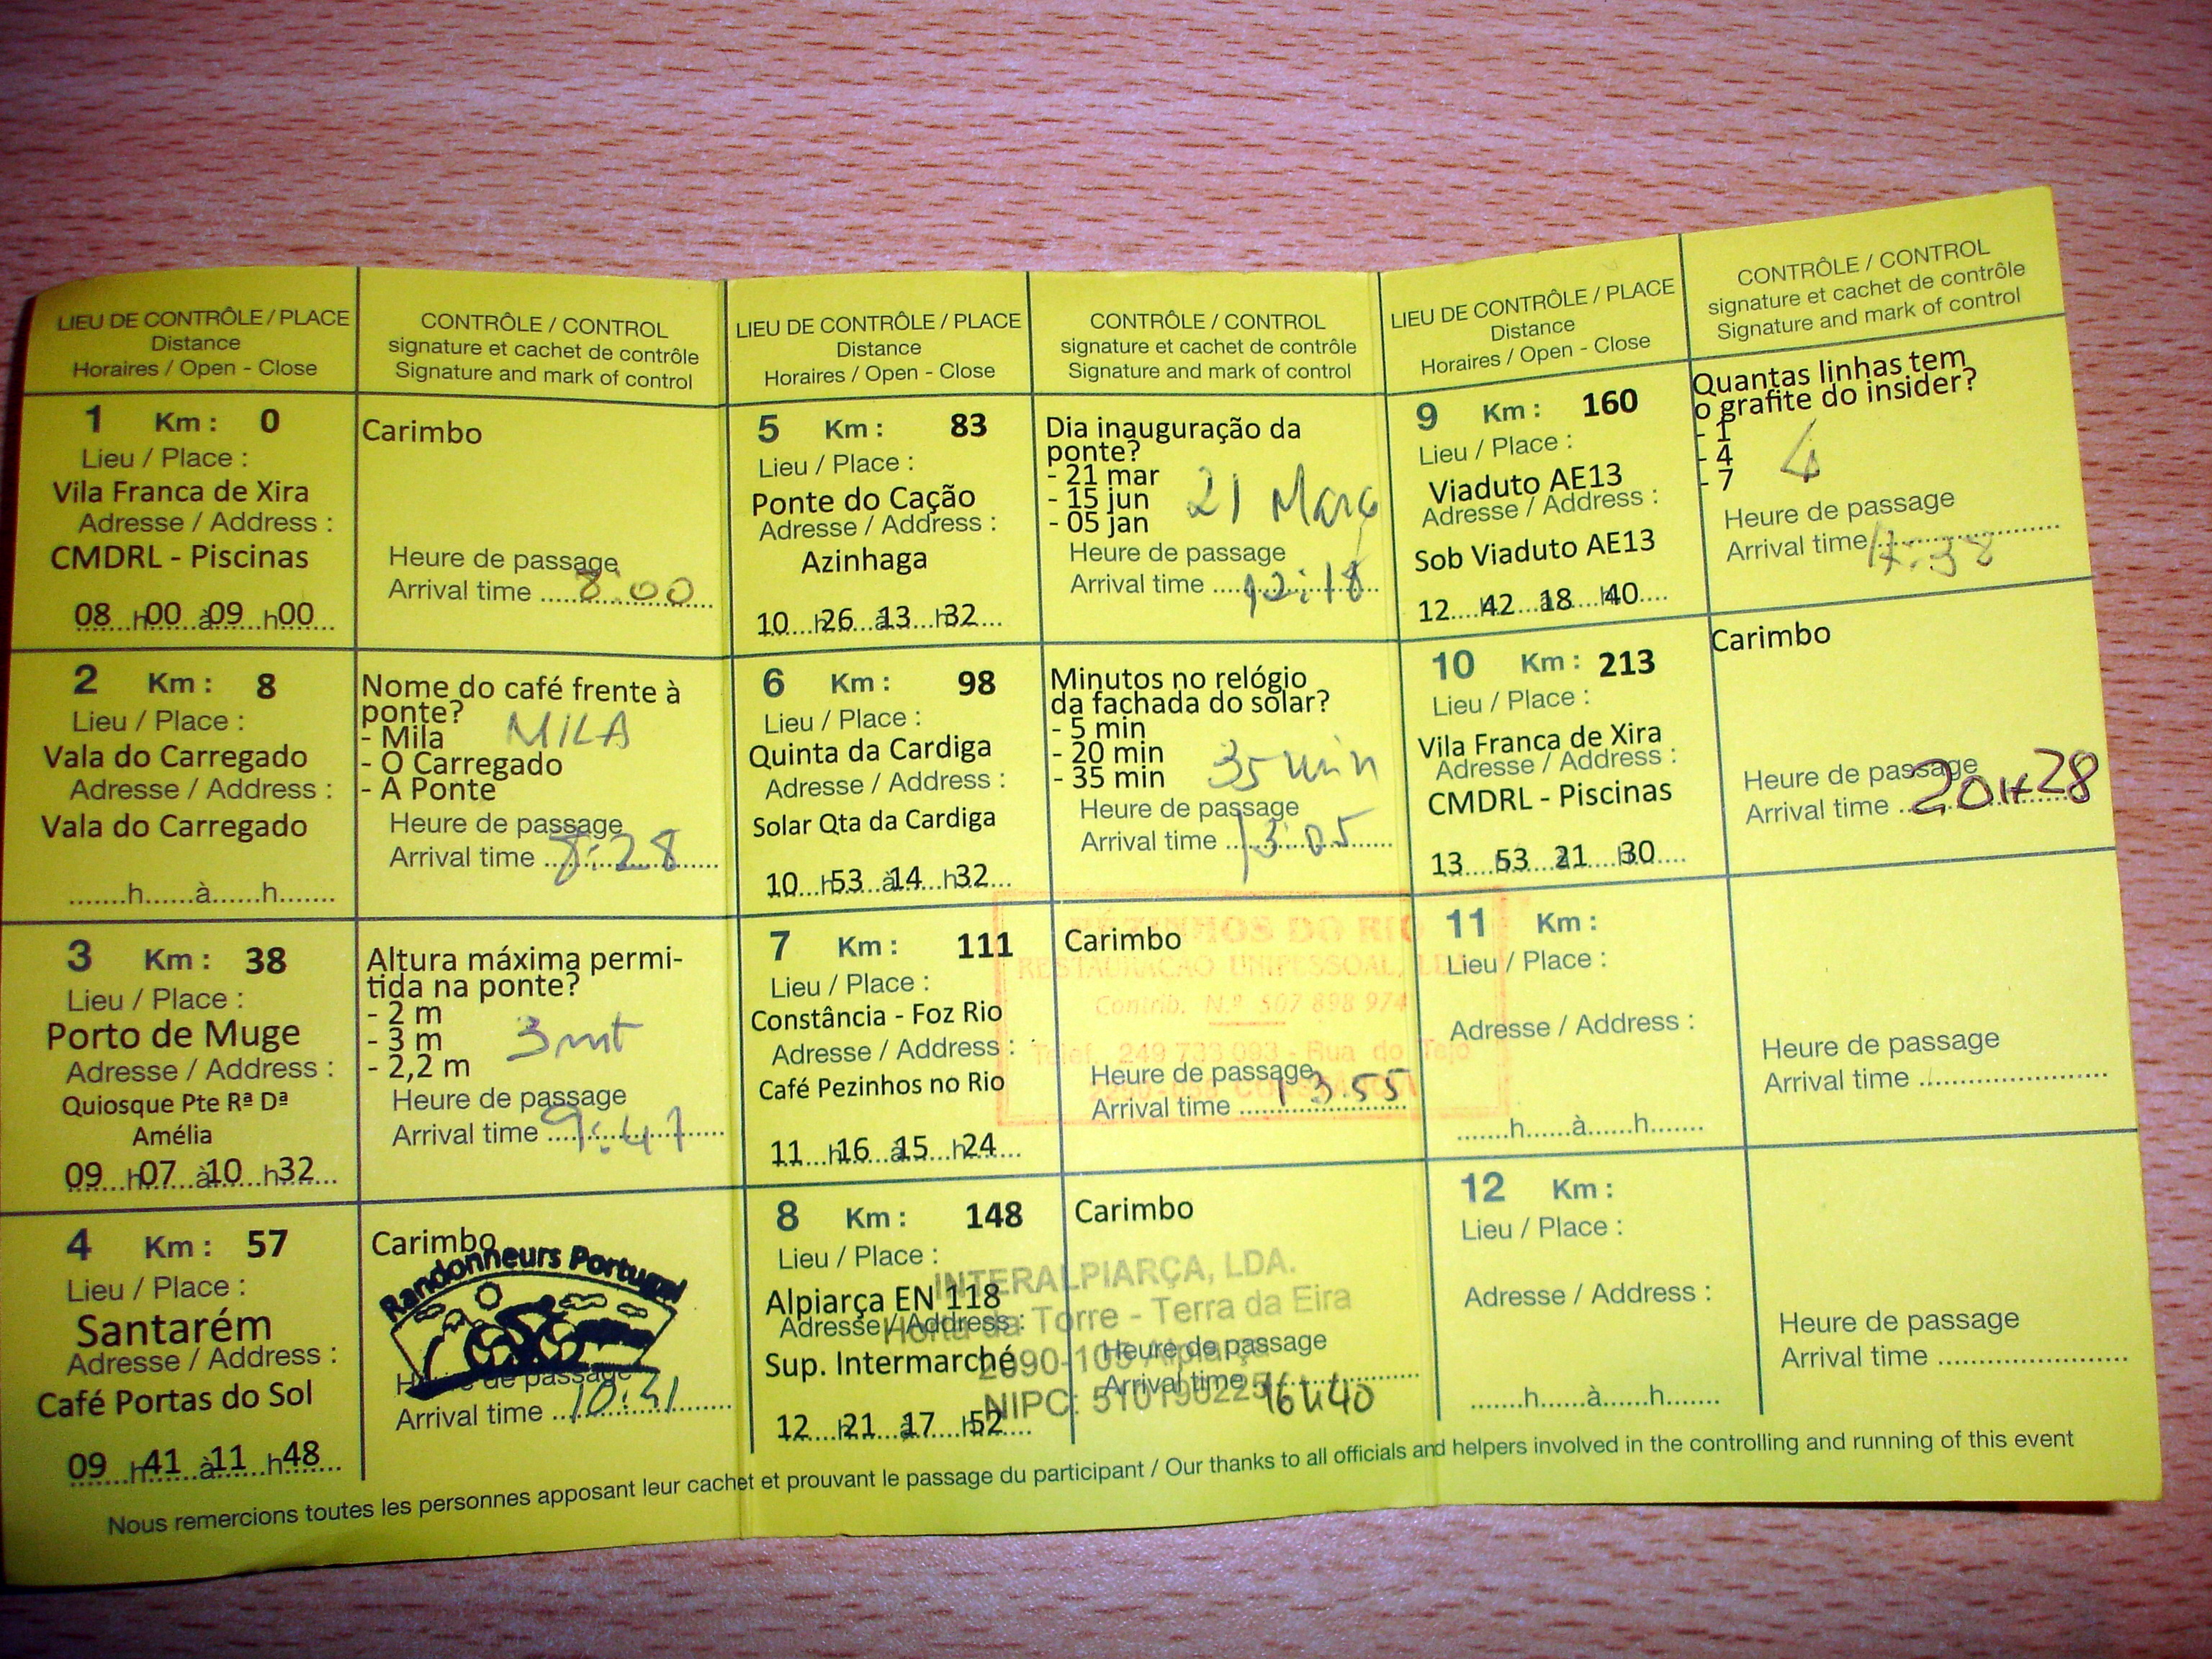 LIEU DE CONTRÔLE / PLACE
Distance
Horaires / Open - Close
CONTRÔLE / CONTROL
signature et cachet de contrôle
Signature and mark of control
1 Km : 0
Lieu / Place :
Vila Franca de Xira
Adresse / Address :
CMDRL - Piscinas
08 h00 à09 h00
Carimbo
Heure de passage
Arrival time 8:00
2 Km : 8
Lieu / Place :
Vala do Carregado
Adresse / Address :
Vala do Carregado
.......h......à......h.......
Nome do café frente à
ponte?
- Mila
- O Carregado
- A Ponte
MILA
Heure de passage
Arrival time 8:28
3 Km : 38
Lieu / Place :
Porto de Muge
Adresse / Address :
Quiosque Pte Rª Dª
Amélia
09 h07 à10 h32
Altura máxima permi-
tida na ponte?
- 2 m
- 3 m
- 2,2 m
3 mt
Heure de passage
Arrival time 9:47
4 Km : 57
Lieu / Place :
Santarém
Adresse / Address :
Café Portas do Sol
09 h41 à11 h48
Carimbo
Randonneurs Portugal
Heure de passage
Arrival time 10:31
LIEU DE CONTRÔLE / PLACE
Distance
Horaires / Open - Close
CONTRÔLE / CONTROL
signature et cachet de contrôle
Signature and mark of control
5 Km : 83
Lieu / Place :
Ponte do Cação
Adresse / Address :
Azinhaga
10 h26 à13 h32
Dia inauguração da
ponte?
- 21 mar
- 15 jun
- 05 jan
21 Março
Heure de passage
Arrival time 12:18
6 Km : 98
Lieu / Place :
Quinta da Cardiga
Adresse / Address :
Solar Qta da Cardiga
10 h53 à14 h32
Minutos no relógio
da fachada do solar?
- 5 min
- 20 min
- 35 min
35 min
Heure de passage
Arrival time 13:05
7 Km : 111
Lieu / Place :
Constância - Foz Rio
Adresse / Address :
Café Pezinhos no Rio
11 h16 à15 h24
Carimbo
PÉZINHOS DO RIO
RESTAURAÇÃO UNIPESSOAL, LDA
Contrib. N.º 507 898 974
Telef. 249 733 093 - Rua do Tejo
CONSTÂNCIA
Heure de passage
Arrival time 13.55
8 Km : 148
Lieu / Place :
Alpiarça EN 118
Adresse / Address :
Sup. Intermarché
12 h21 à17 h52
Carimbo
INTERALPIARÇA, LDA.
Horta da Torre - Terra da Eira
2090-105 Alpiarça
NIPC:
Heure de passage
Arrival time 16h40
LIEU DE CONTRÔLE / PLACE
Distance
Horaires / Open - Close
CONTRÔLE / CONTROL
signature et cachet de contrôle
Signature and mark of control
9 Km : 160
Lieu / Place :
Viaduto AE13
Adresse / Address :
Sob Viaduto AE13
12 h42 à18 h40
Quantas linhas tem
o grafite do insider?
- 1
- 4
- 7
4
Heure de passage
Arrival time 17:38
10 Km : 213
Lieu / Place :
Vila Franca de Xira
Adresse / Address :
CMDRL - Piscinas
13 h53 à21 h30
Carimbo
Heure de passage
Arrival time 20H28
11 Km :
Lieu / Place :
Adresse / Address :
.......h......à......h.......
Heure de passage
Arrival time ............................
12 Km :
Lieu / Place :
Adresse / Address :
.......h......à......h.......
Heure de passage
Arrival time ............................
Nous remercions toutes les personnes apposant leur cachet et prouvant le passage du participant / Our thanks to all officials and helpers involved in the controlling and running of this event